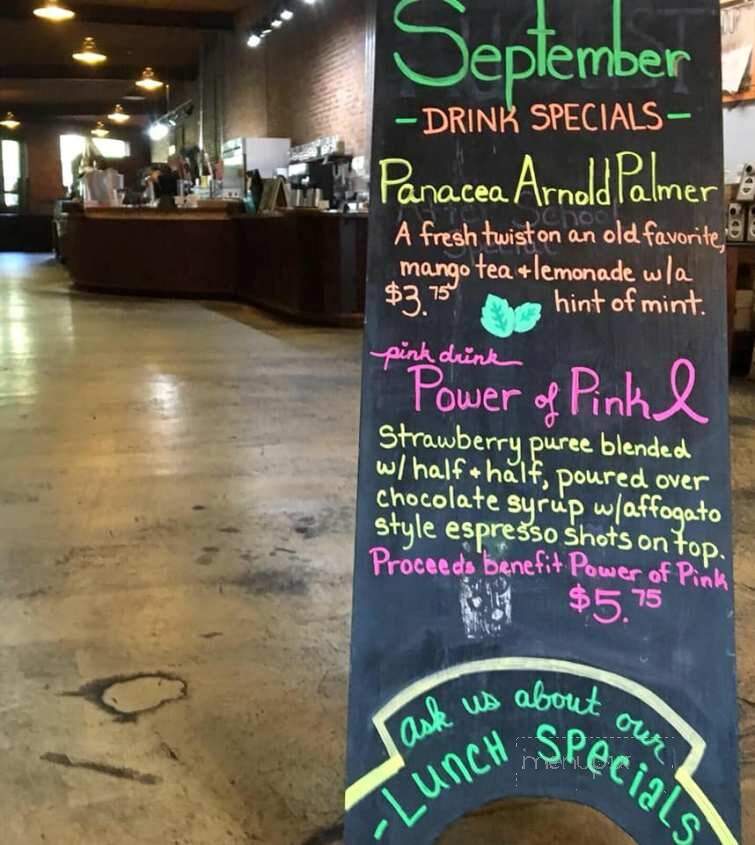 September
- DRINK SPECIALS -
Panacea Arnold Palmer
A fresh twist on an old favorite,
mango tea + lemonade w/a
$3.75 hint of mint.
pink drink
Power of Pink
Strawberry puree blended
w/ half + half, poured over
chocolate syrup w/affogato
style espresso shots on top.
Proceeds benefit Power of Pink
$5.75
ask us about our
- LUNCH SPECIALS
menupix